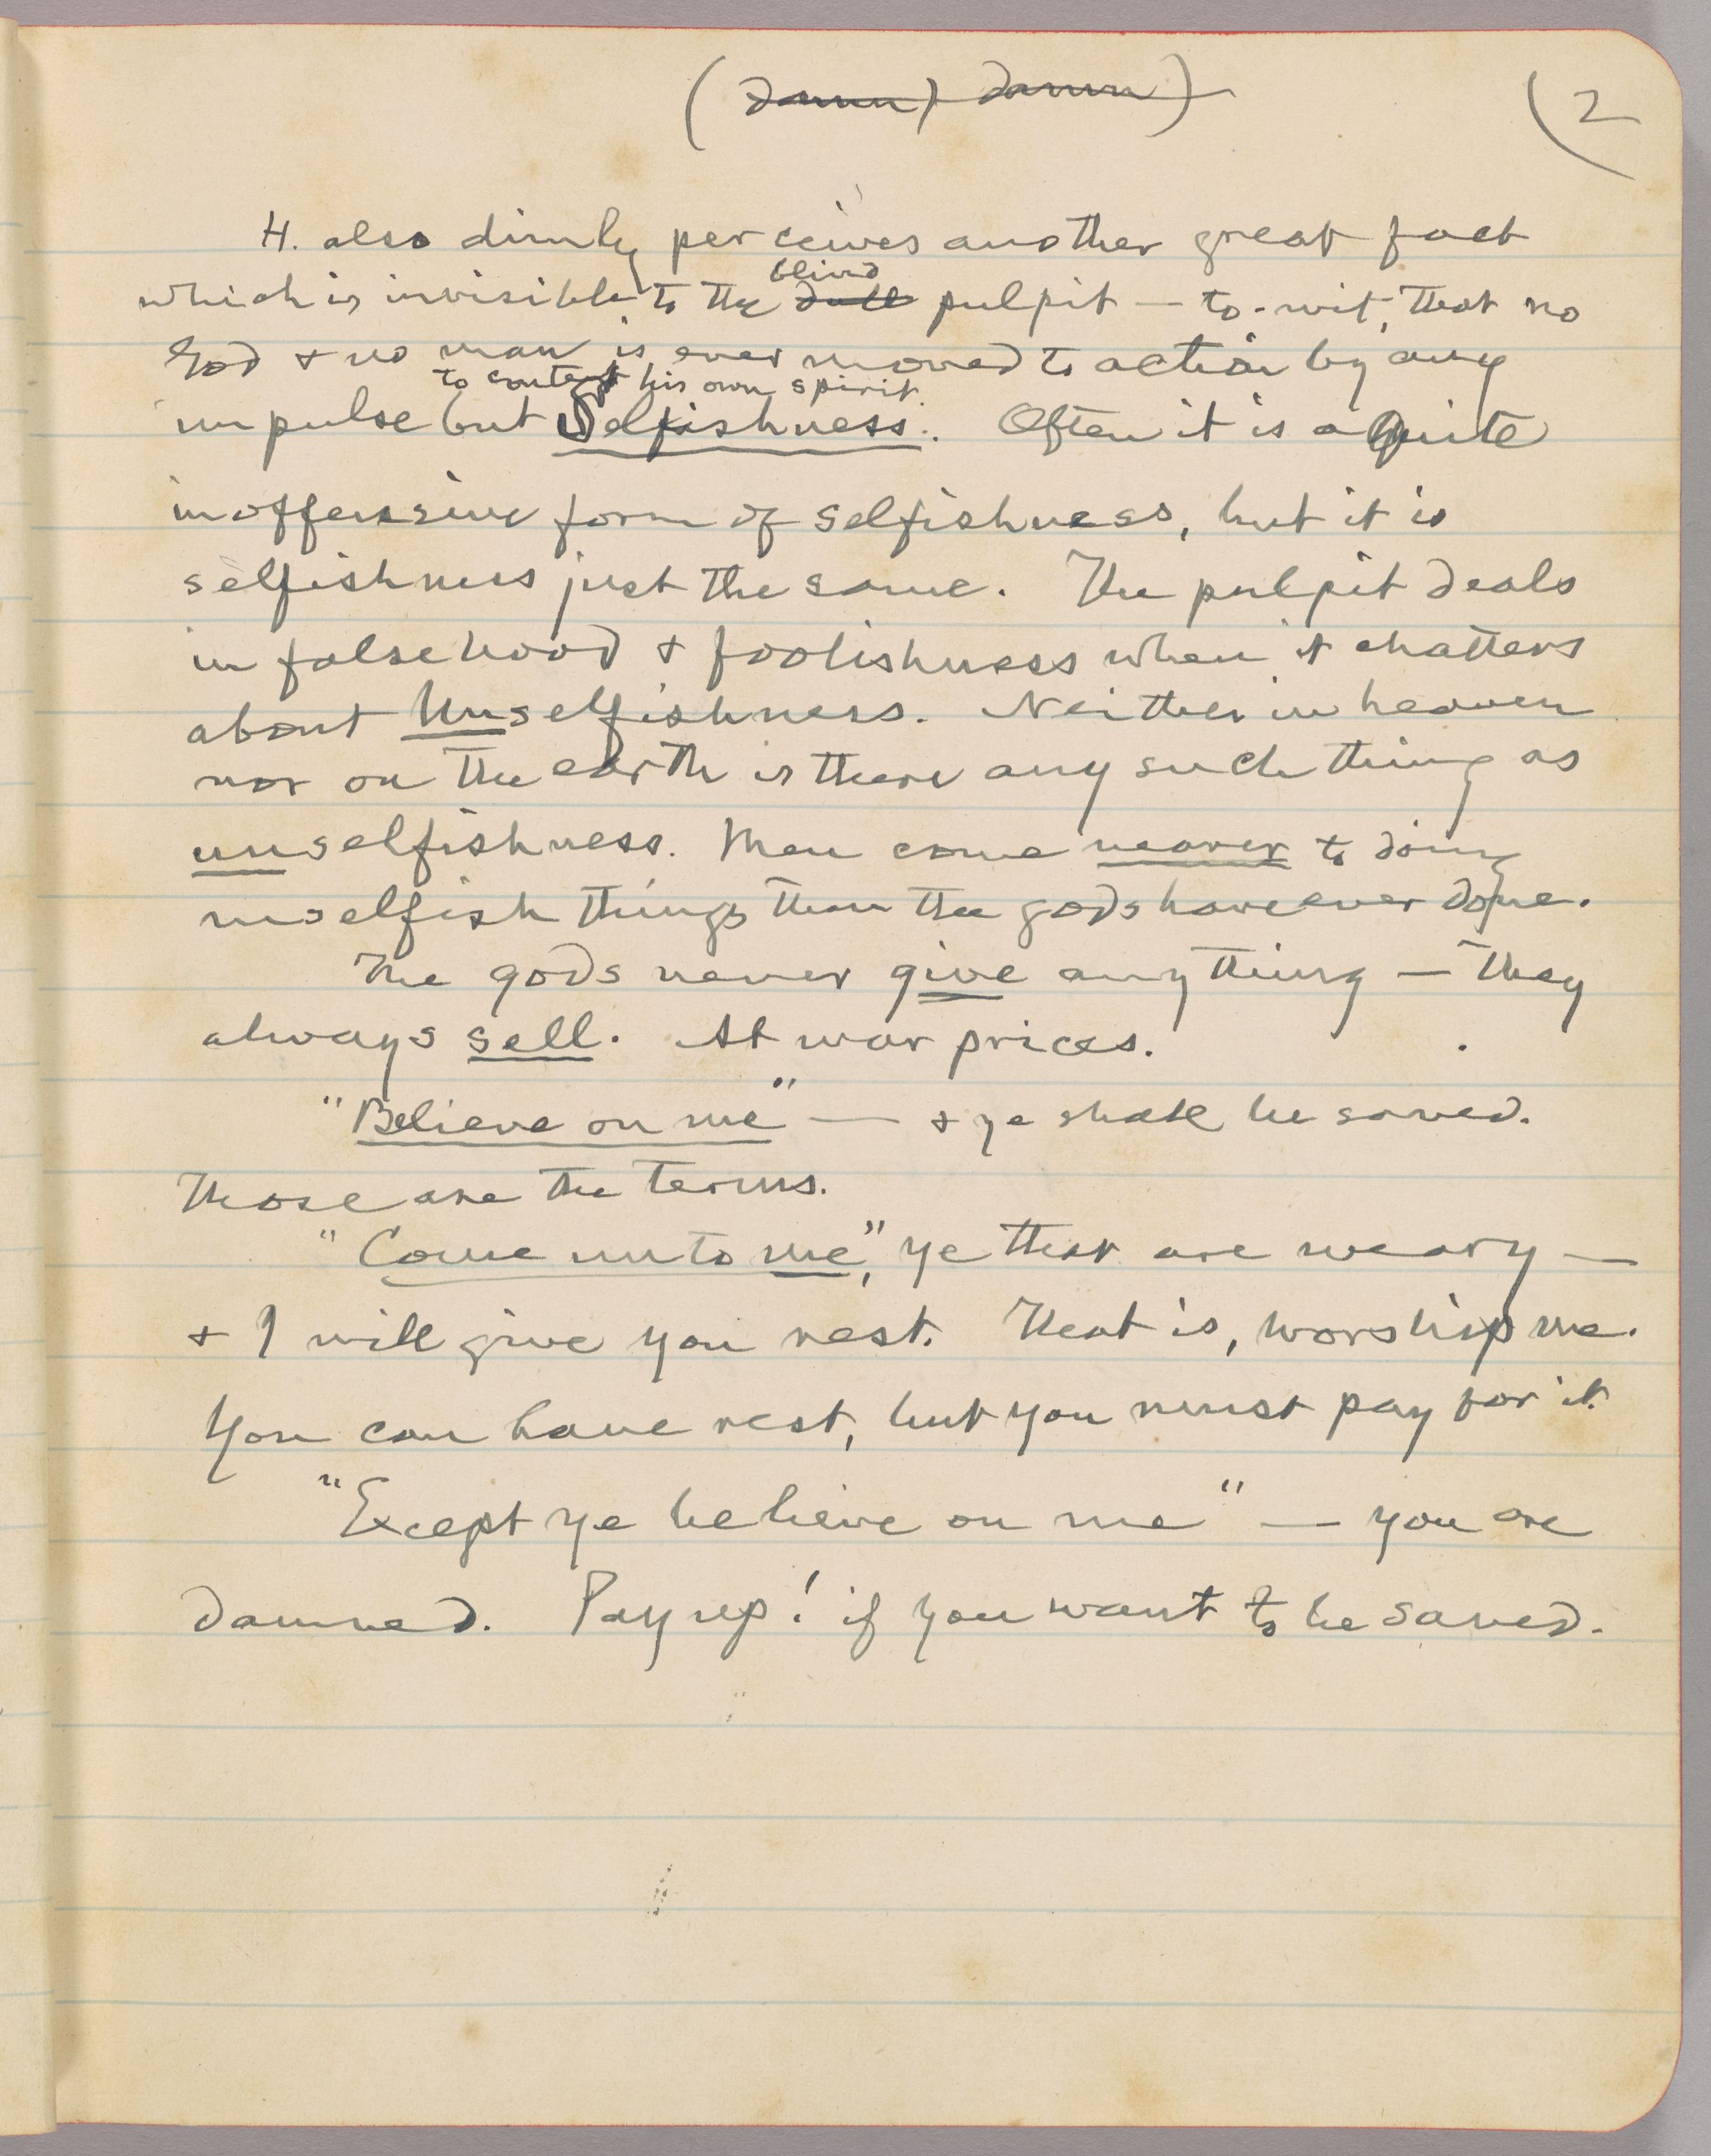 (damn) damn)
(2
H. also dimly perceives another great fact
blind
which is invisible to the dull pulpit — to-wit, that no
God & no man is ever moved to action by any
to content his own spirit.
impulse but Selfishness. Often it is a quite
inoffensive form of selfishness, but it is
selfishness just the same. The pulpit deals
in falsehood & foolishness when it chatters
about Unselfishness. Neither in heaven
nor on the earth is there any such thing as
unselfishness. Men come nearer to doing
unselfish things than the gods have ever done.
The gods never give anything — they
always sell. At war prices.
"Believe on me" — & ye shall be saved.
Those are the terms.
"Come unto me," ye that are weary —
& I will give you rest. That is, worship me.
You can have rest, but you must pay for it.
"Except ye believe on me" — you are
damned. Pay up! if you want to be saved.